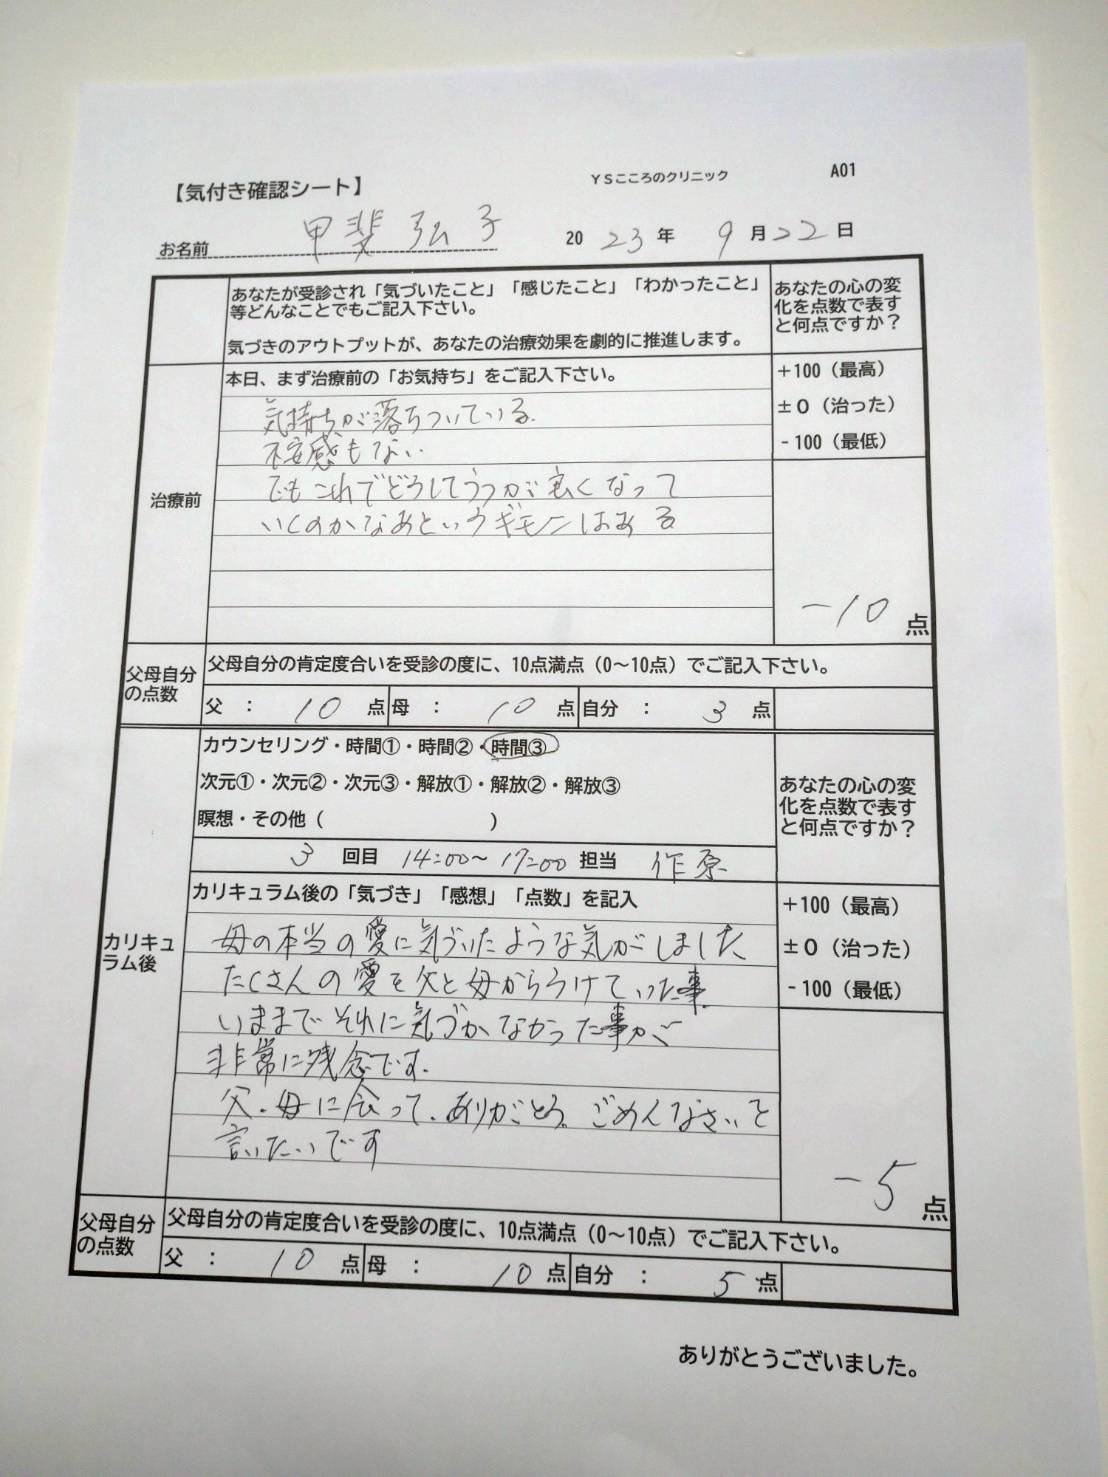 【気付き確認シート】
YSこころのクリニック
A01
お名前 甲斐弘子
2023年 9月22日
あなたが受診され「気づいたこと」「感じたこと」「わかったこと」
等どんなことでもご記入下さい。
気づきのアウトプットが、あなたの治療効果を劇的に推進します。
あなたの心の変
化を点数で表す
と何点ですか？
治療前
本日、まず治療前の「お気持ち」をご記入下さい。
気持ちが落ちついている。
不安感もない
でもこれでどうしてうつが良くなって
いくのかなあというギモンはある
+100（最高）
±0（治った）
-100（最低）
-10点
父母自分
の点数
父母自分の肯定度合いを受診の度に、10点満点（0～10点）でご記入下さい。
父 ： 10 点 母 ： 10 点 自分 ： 3 点
カリキュ
ラム後
カウンセリング・時間①・時間②・時間③
次元①・次元②・次元③・解放①・解放②・解放③
瞑想・その他（ ）
3 回目 14:00～17:00 担当 作原
あなたの心の変
化を点数で表す
と何点ですか？
カリキュラム後の「気づき」「感想」「点数」を記入
母の本当の愛に気づいたような気がしました
たくさんの愛を父と母からうけていた事
いままでそれに気づかなかった事が
非常に残念です。
父、母に会って、ありがとう。ごめんなさいと
言いたいです
+100（最高）
±0（治った）
-100（最低）
-5点
父母自分
の点数
父母自分の肯定度合いを受診の度に、10点満点（0～10点）でご記入下さい。
父 ： 10 点 母 ： 10 点 自分 ： 5 点
ありがとうございました。